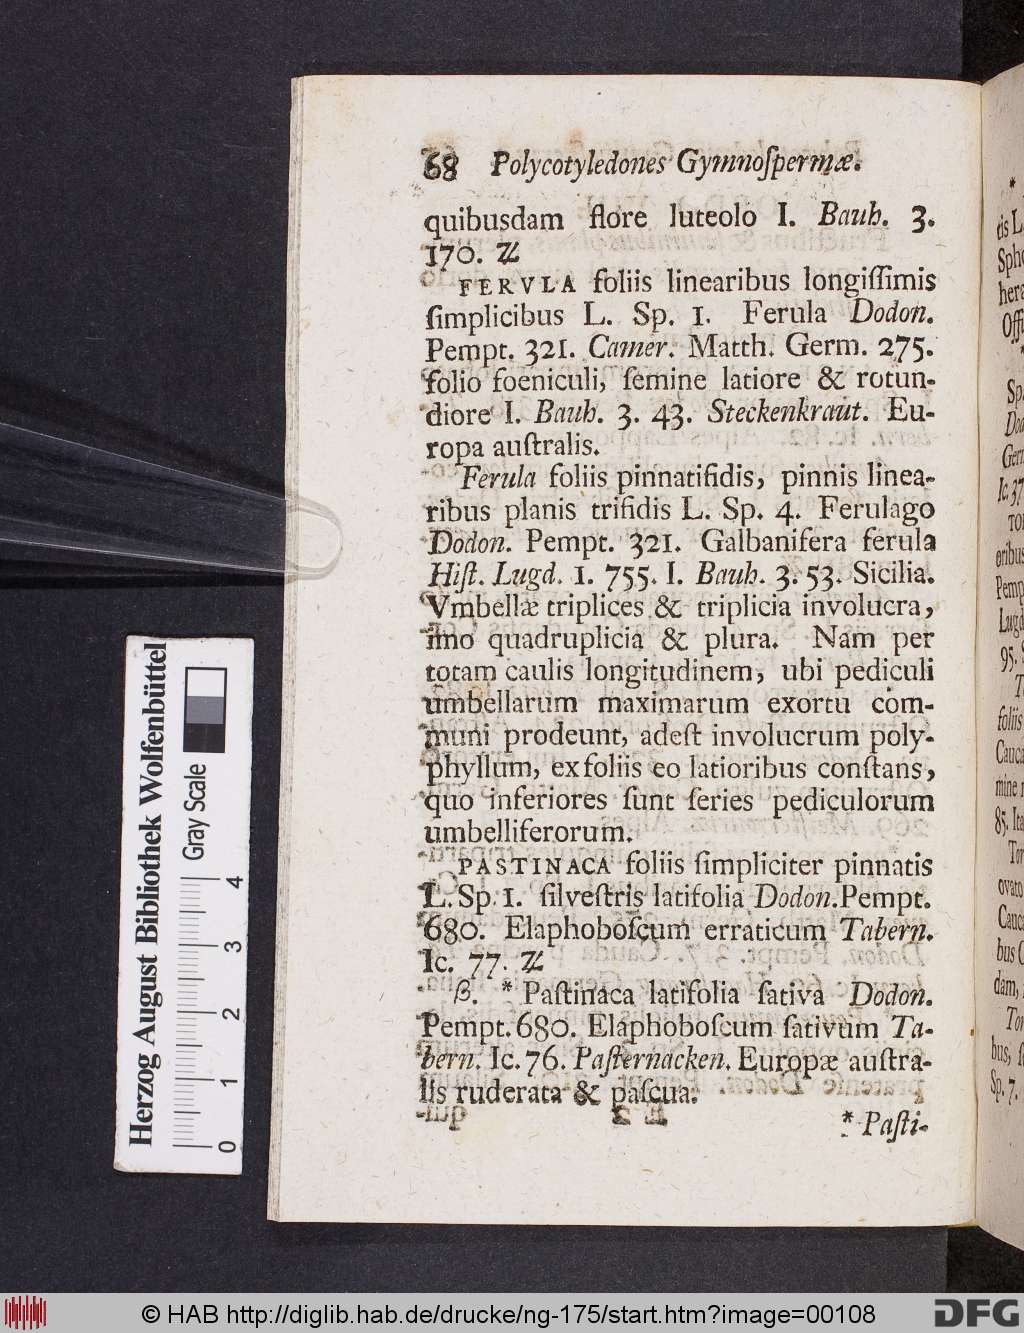 68 Polycotyledones Gymnoſpermæ.
quibusdam flore luteolo I. Bauh. 3.
170. ♃
FERVLA foliis linearibus longiſſimis
ſimplicibus L. Sp. 1. Ferula Dodon.
Pempt. 321. Camer. Matth. Germ. 275.
folio foeniculi, ſemine latiore & rotun-
diore I. Bauh. 3. 43. Steckenkraut. Eu-
ropa auſtralis.
Ferula foliis pinnatifidis, pinnis linea-
ribus planis trifidis L. Sp. 4. Ferulago
Dodon. Pempt. 321. Galbanifera ferula
Hiſt. Lugd. 1. 755. I. Bauh. 3. 53. Sicilia.
Vmbellæ triplices & triplicia involucra,
imo quadruplicia & plura. Nam per
totam caulis longitudinem, ubi pediculi
umbellarum maximarum exortu com-
muni prodeunt, adeſt involucrum poly-
phyllum, ex foliis eo latioribus conſtans,
quo inferiores ſunt ſeries pediculorum
umbelliferorum.
PASTINACA foliis ſimpliciter pinnatis
L. Sp. 1. ſilveſtris latifolia Dodon. Pempt.
680. Elaphoboſcum erraticum Tabern.
Ic. 77. ♃
β. * Paſtinaca latifolia ſativa Dodon.
Pempt. 680. Elaphoboſcum ſativum Ta-
bern. Ic. 76. Paſternacken. Europæ auſtra-
lis ruderata & paſcua.
* Paſti-
Herzog August Bibliothek Wolfenbüttel
Gray Scale
0 1 2 3 4
© HAB http://diglib.hab.de/drucke/ng-175/start.htm?image=00108
DFG